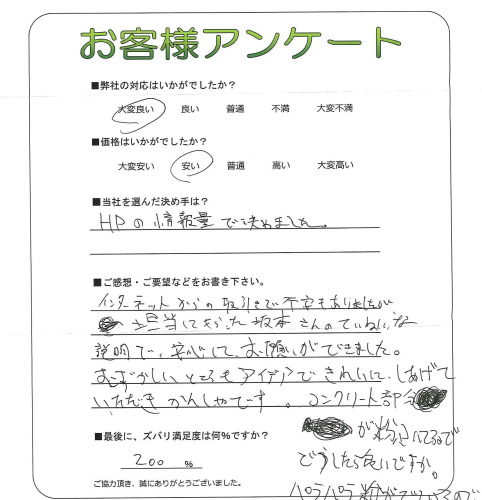 お客様アンケート
■弊社の対応はいかがでしたか?
大変良い 良い 普通 不満 大変不満
■価格はいかがでしたか?
大変安い 安い 普通 高い 大変高い
■当社を選んだ決め手は?
HPの情報量で決めました。
■ご感想・ご要望などをお書き下さい。
インターネットからの取引きで不安もありましたが
担当して下さった坂本さんのていねいな
説明で、安心して、お願いができました。
むずかしいところもアイデアできれいに、しあげて
いただき かんしゃです。コンクリート部分
■最後に、ズバリ満足度は何%ですか?
が粉
200 %
どうしたら良いですか。
ご協力頂き、誠にありがとうございました。
パラパラ粉が